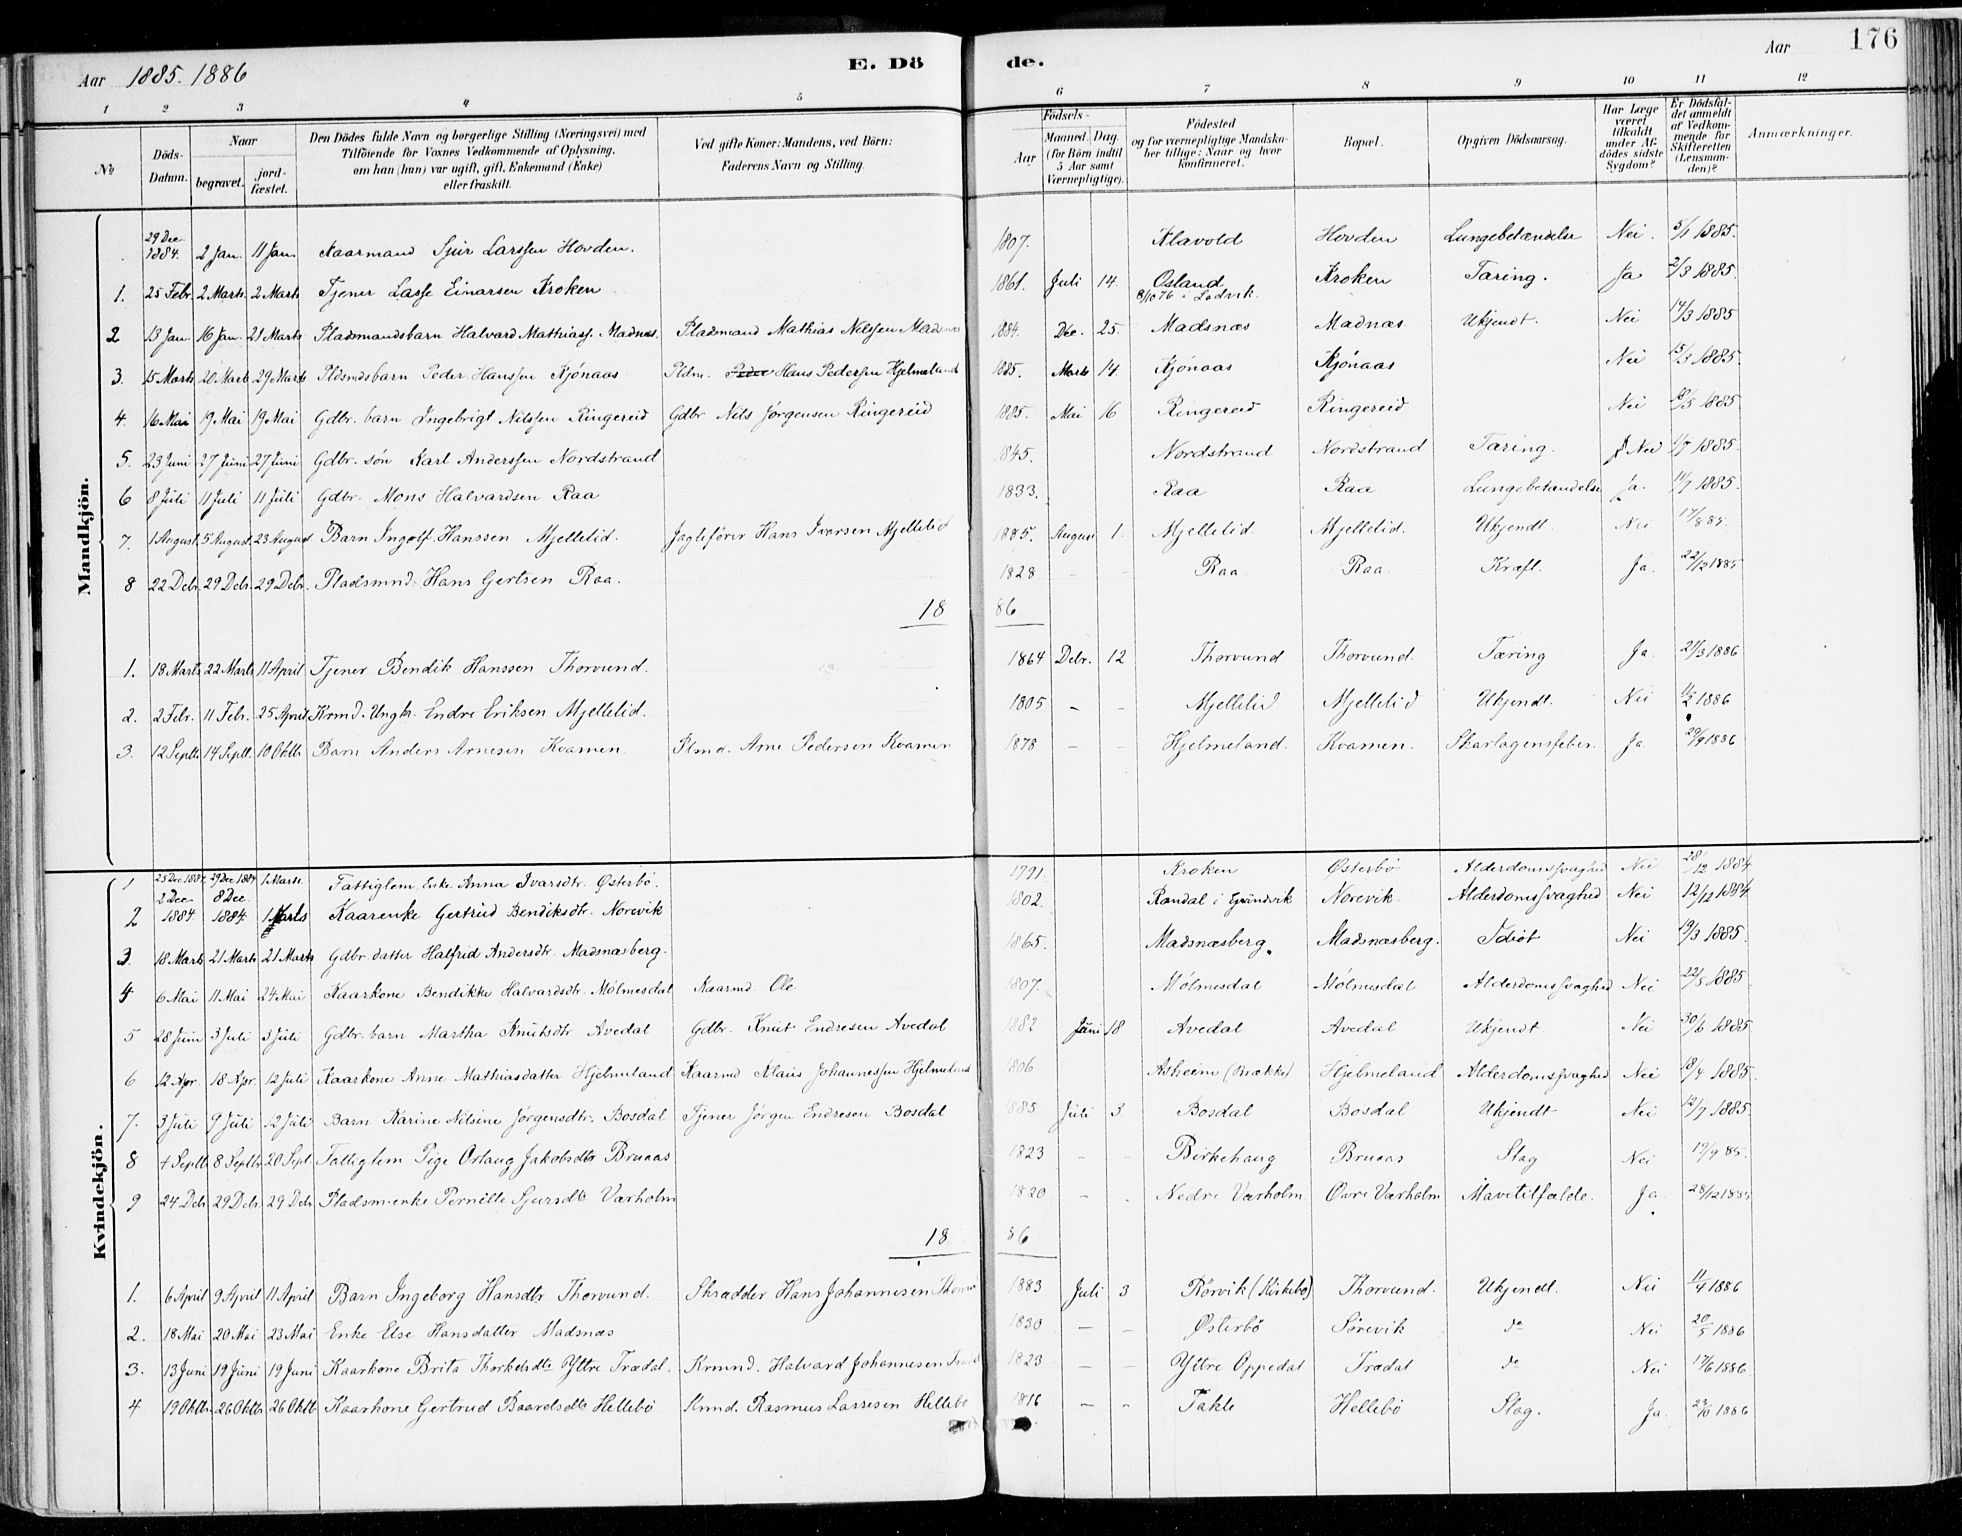 Aar 1885. 1886 E. Dö de. Aar 176
1 2 3 4 5 6 7 8 9 10 11 12
No Döds-Datum. Naar begravet. jord-fæstet. Den Dödes fulde Navn og borgerlige Stilling (Næringsvei) med Tilföiende for Voxnes Vedkommende af Oplysning, om han (hun) var ugift, gift, Enkemand (Enke) eller fraskilt. Ved gifte Koner: Mandens, ved Börn: Faderens Navn og Stilling. Födsels- Aar Maaned. Dag. (for Börn indtil 5 Aar samt Værnepligtige). Födested og for værnepligtige Mandskaber tillige: Naar og hvor konfirmeret. Bopæl. Opgiven Dödsaarsag. Har Læge været tilkaldt under Afdödes sidste Sygdom? Er Dödsfaldet anmeldt af Vedkommende for Skifteretten (Lensmanden)? Anmærkninger.
Mandkjön.
29 Dec 1884. 2 Jan. 11 Jan. Kaarmand Sjur Larssen Hovden. 1807. Klavold Hovden Lungebetændelse Nei. 5/1 1885.
1. 25 Febr. 2 Marts 2 Marts Tjener Lasse Einarsen Kroken 1861. Juli 14. Osland 8/10 76 i Ladvik. Kroken Tæring. Ja 2/3 1885.
2 13 Jan. 16 Jan. 21 Marts Pladsmandsbarn Halvard Mathiass. Madnæs. Pladsmand Mathias Nilssen Madsnæs 1884. Dec. 25. Madsnæs Madnæs Ukjendt. Nei 14/3 1885
3. 15 Marts 20 Marts 29 Marts Pldsmdsbarn Peder Hanssen Kjónaas Pldm. Peder Hans Pedersen Hjelmeland 1885. Marts 14. Kjónaas Kjónaas Nei 15/3 1885.
4. 16 Mai 19 Mai 19 Mai Gdbr. barn Ingebrigt Nilssen Ringereid Gdbr Nils Jørgensen Ringereid 1885. Mai 16 Ringereid Ringereid Nei 1885
5. 23 Juni 27 Juni 27 Juni Gdbr. søn Karl Anderssen Nordstrand 1845. Nordstrand Nordstrand Tæring. Nei 1/7 1885.
6 8 Juli 11 Juli 11 Juli Gdbr. Mons Halvardsen Raa 1833. Raa Raa Lungebetændelse Ja. 11/7 1885.
7. 1 August. 5 August. 23 August Barn Ingolf Hanssen Mjellelid. Jagtefører Hans Iversen Mjellelid 1885. August 1. Mjellelid. Mjellelid. Ukjendt. Nei 17/8 85.
8 22 Debr. 29 Debr. 29 Debr. Pladsmnd. Hans Gertsen Raa. 1828 – – Raa. Raa. Kræft. Ja. 22/12 1885
18 86
1. 18 Marts 22 Marts 11 April Tjener Bendik Hanssen Thorvund. 1864 Debr. 12 Thorvund Thorvund. Tæring Ja. 21/3 1886
2. 2 Febr. 11 Febr. 25 April Krmd. Ungk. Endre Eriksen Mjellelid. 1805 – – Mjellelid Mjellelid Ukjendt. Nei 11/2 1886
3. 12 Septb. 14 Septb. 10 Oktb. Barn Anders Arnesen Kvamen. Plmd. Arne Pedersen Kvamen 1878 – – Hjelmeland. Kvamen. Skarlagensfeber. Ja 29/9 1886
Kvindekjön.
1 25 Dec 1884. 29 Dec 1884 1 Marts. Fattiglem, Enke Anna Ivarsdtr. Østerbö. 1791. Kroken Østerbö Alderdomssvaghed Nei 28/12 1884
2 2 Dec 1884. 8 Dec 1884. 1 Marts Kaarenke Gertrud Bendiksdtr. Norevik 1802. Randal i Norevik. Alderdomssvaghed Nei 12/12 1884
3. 18 Marts 21 Marts 21 Marts Gdbr. datter Halfrid Andersdtr. Madsnæsberg. 1865. Madsnæsberg. Madsnæsberg. Idiot Nei 19/3 1885.
4 6 Mai 11 Mai 24 Mai Kaarkone Bendikke Halvardsdtr. Mólmesdal Kaarmd. Ole 1807. Mólmesdal Mólmesdal Alderdomssvaghed Nei 22/5 1885
5 28 Juni 3 Juli 3 Juli Gdbr. barn Martha Knutsdtr. Avedal Gdbr. Knut Endresen Avedal 1882 Juni 18 Avedal Avedal Ukjendt. Nei 30/6 1885
6 12 Apr. 18 Apr. 12 Juli Kaarkone Anne Mathiasdatter Hjelmeland Kaarmd Klaus Johannessen Hjelmeland 1806 Asheim (Brække) Hjelmeland Alderdomssvaghed Nei 18/4 1885.
7. 3 Juli 9 Juli 12 Juli Barn Karine Nilsine Jørgensdtr. Bosdal Tjener Jørgen Endresen Bosdal 1885 Juli 3. Bosdal Bosdal Ukjendt Nei 12/7 1885.
8 4 Septb. 8 Septbr. 20 Sept. Fattiglem Pige Orlaug Jakobsdtr Bruaas 1823 – – Birkehaug Bruaas Slag. Nei 19/9 85.
9 24 Debr 29 Debr. 29 Debr Pladsm.enke Pernille Sjursdtr Værholm 1820 – – Nedre Værholm Øvre Værholm Mavetilfælde. Ja. 28/12 1885
18 86
1. 6 April 9 April 11 April Barn Ingeborg Hansdtr Thorvund. Skrædder Hans Johannesen 1883 Juli 3 Rörvik (Kirkebø) Thorvund. Ukjendt. Nei 11/4 1886
2. 18 Mai 20 Mai 23 Mai Enke Else Hansdatter Madsnæs 1830 – – Østerbö Sørevik do Nei 20/5 1886
3. 13 Juni 19 Juni 19 Juni Kaarkone Brita Thorkelsdtr Yttre Trædal. Krmnd. Halvard Johannesen 1823 – – Yttre Oppedal Trædal do Nei 17/6 1886
4 19 Oktbr. 26 Oktbr 26 Oktb Kaarkone Gertrud Baardsdtr Hellebö Krmd. Rasmus Larsesen Hellebö 1816 – – Takle Hellebö Slag. Ja. 23/10 1886